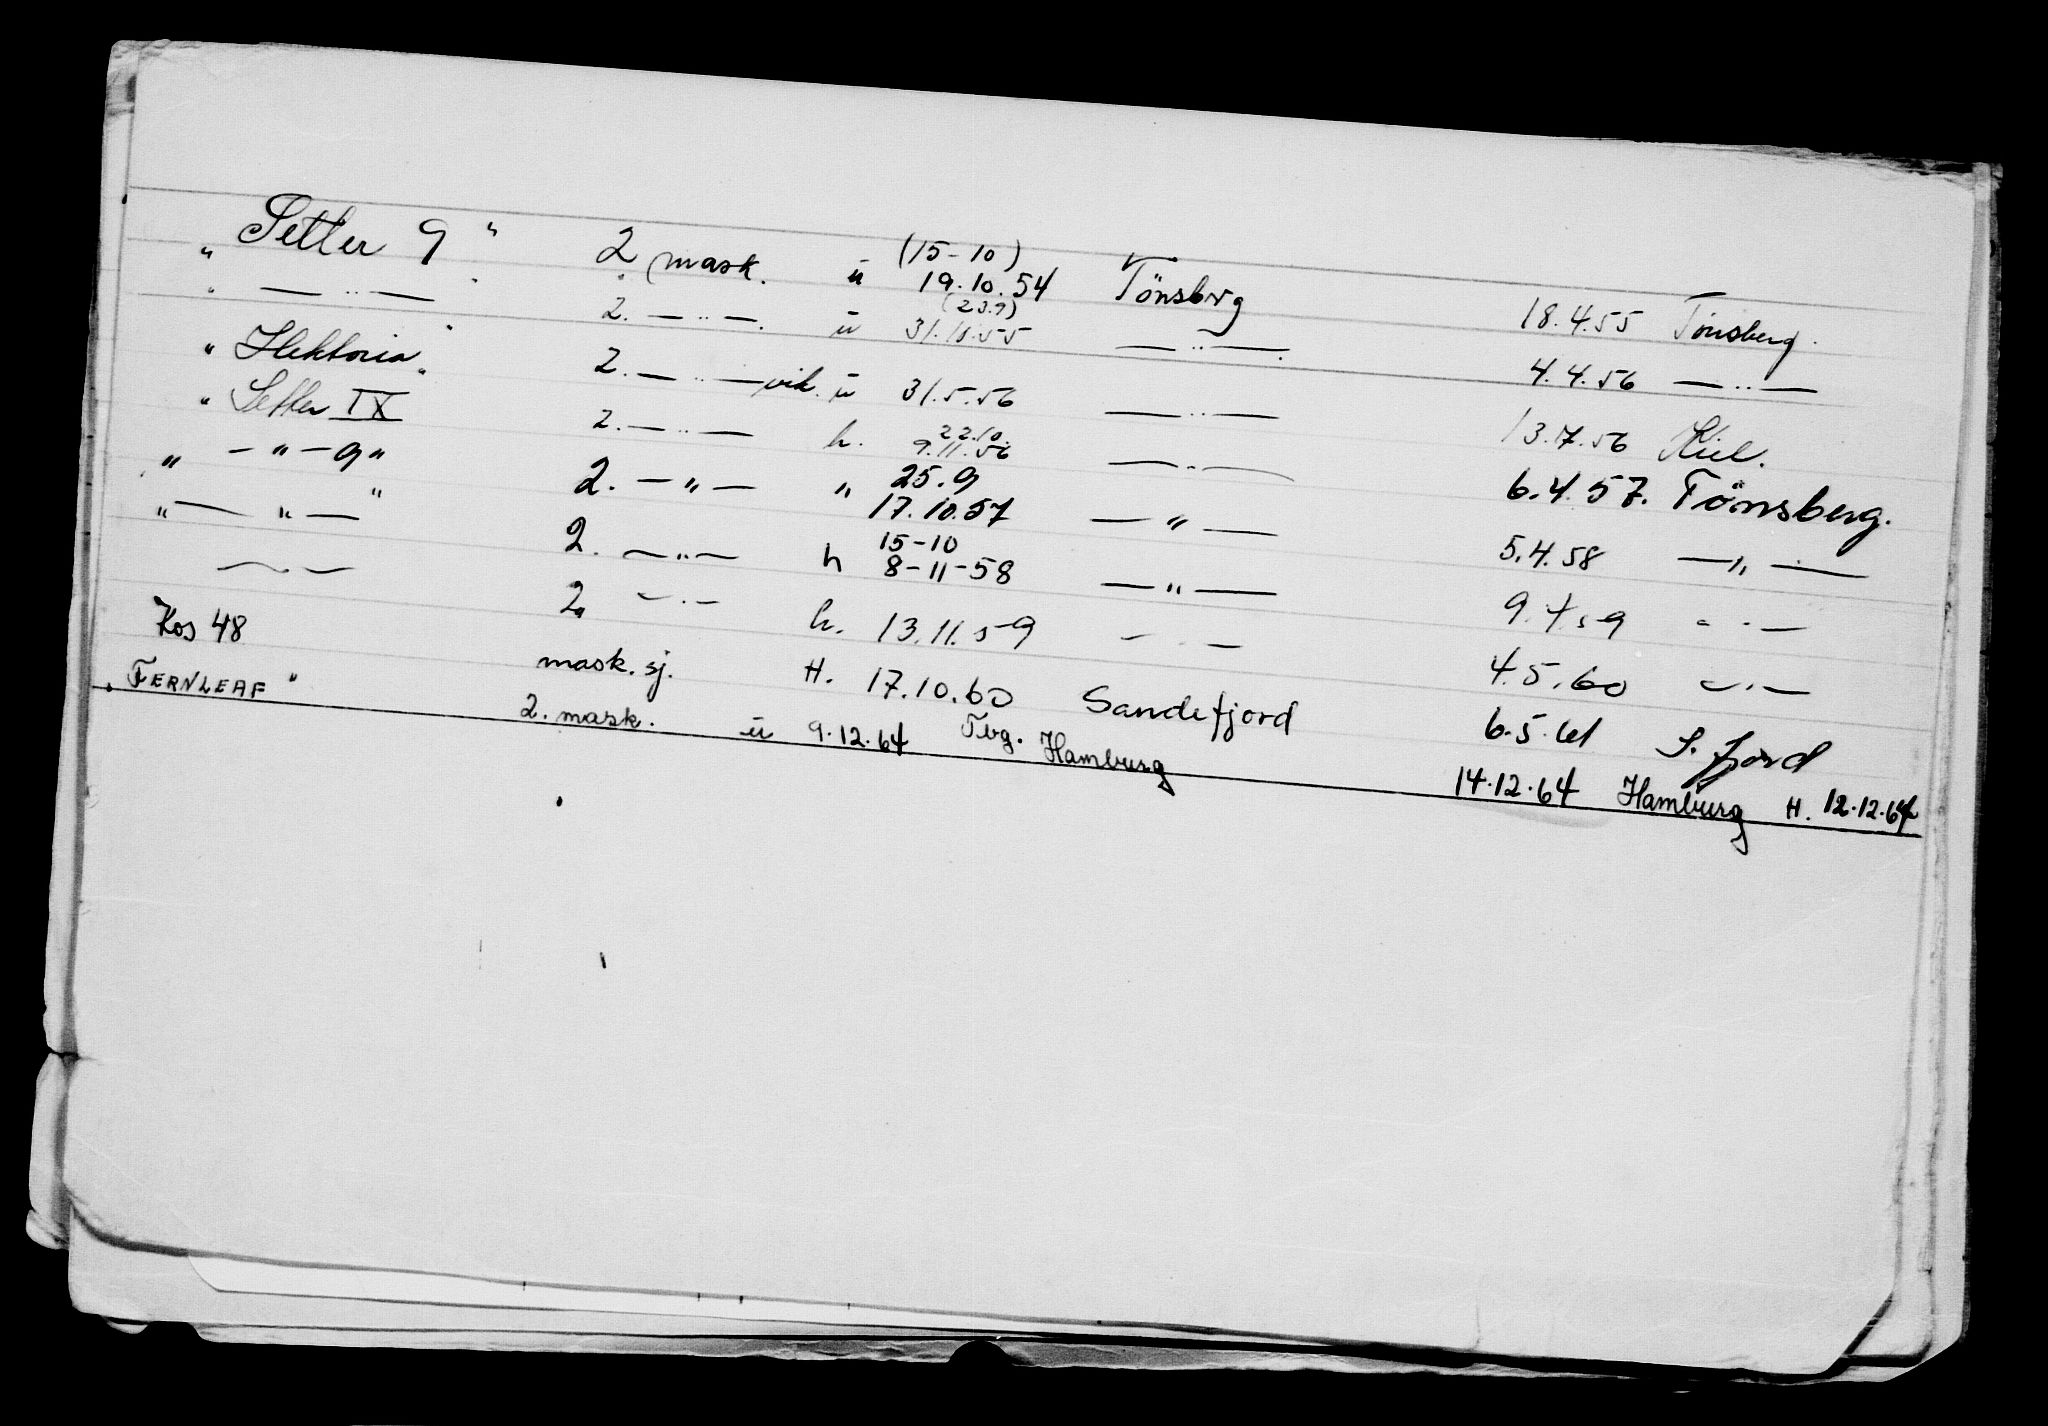 "Setter 9" 2 mask. u (15-10) 19.10.54 Tönsberg 18.4.55 Tönsberg.
" — " — " 2. — " —. u (23.9) 31.10.55 — " —. 4.4.56 — " —
"Hektoria" 2. — " — vik. u 31.5.56 — " — 13.7.56 Kiel.
"Setter IX 2. — " — h. 22.10. 9.11.56 — " — 6.4.57. Tönsberg.
" — " — 9" 2. — " — " 25.9 17.10.57 — " — 5.4.58 — " —
" — " — " 2. — " — h 15-10 8-11-58 — " — 9.4.59 " " —
— " — 2. — " — h. 13.11.59 — " — 4.5.60 — " —
Kos 48 mask. sj. H. 17.10.60 Sandefjord 6.5.61 S. fjord
"FERNLEAF" 2. mask. u 9.12.64 Tbg. Hamburg 14.12.64 Hamburg H. 12.12.64